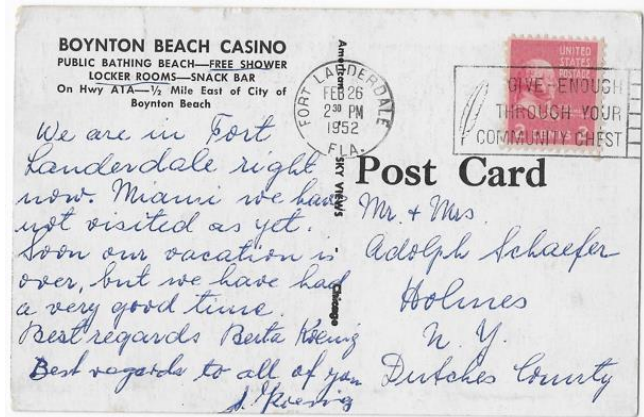 BOYNTON BEACH CASINO
PUBLIC BATHING BEACH—FREE SHOWER
LOCKER ROOMS—SNACK BAR
On Hwy ATA—½ Mile East of City of
Boynton Beach
We are in Fort
Landerdale right
now. Miami we have
not visited as yet.
Soon our vacation is
over, but we have had
a very good time.
Best regards Berta Koenig
Best regards to all of you
J. Koenig
American
SKY VIEWS - Chicago
FORT LAUDERDALE
FEB 26
2 30 PM
1952
FLA.
UNITED
STATES
POSTAGE
2 CENTS 2
GIVE ENOUGH
THROUGH YOUR
COMMUNITY CHEST
Post Card
Mr. + Mrs.
Adolph Schaefer
Holmes
N. Y.
Dutches County